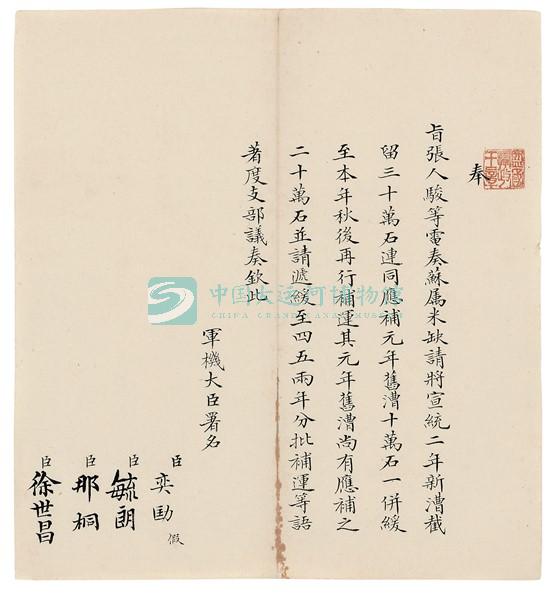 奉
旨張人駿等電奏蘇属米缺請將宣統二年新漕截
留三十萬石連同應補元年舊漕十萬石一併緩
至本年秋後再行補運其元年舊漕尚有應補之
二十萬石並請遞緩至四五兩年分批補運等語
著度支部議奏欽此
軍機大臣署名
臣奕劻假
臣毓朗
臣那桐
臣徐世昌
中国大运河博物馆
CHINA GRAND CANAL MUSEUM